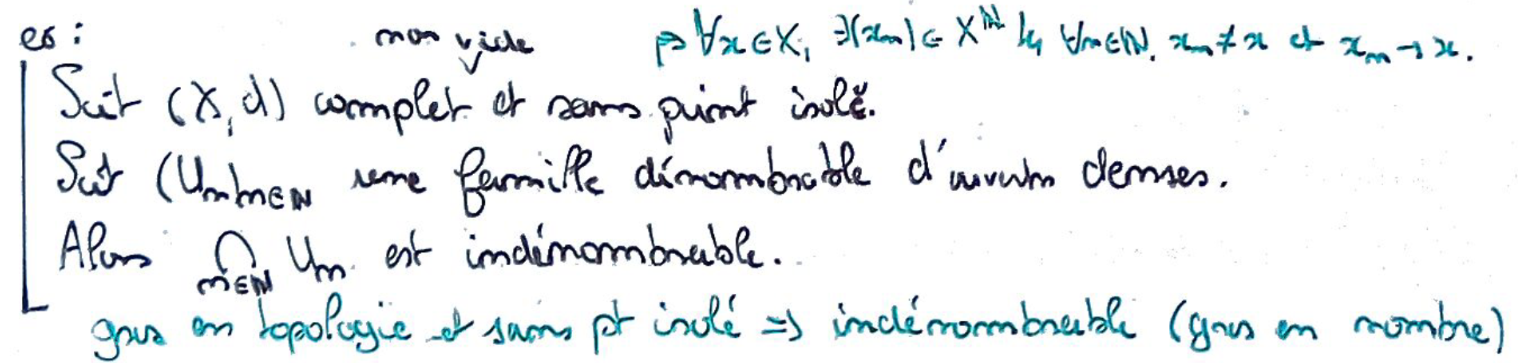 es : non vide ↪ ∀x∈X, ∃(xₙ) ∈ X^ℕ tq ∀n∈ℕ, xₙ ≠ x et xₙ → x.
Soit (X, d) complet et sans point isolé.
Soit (Uₙ)ₙ∈ℕ une famille dénombrable d'ouverts denses.
Alors ⋂ₙ∈ℕ Uₙ est indénombrable.
gros en topologie et sans pt isolé ⇒ indénombrable (gros en nombre)